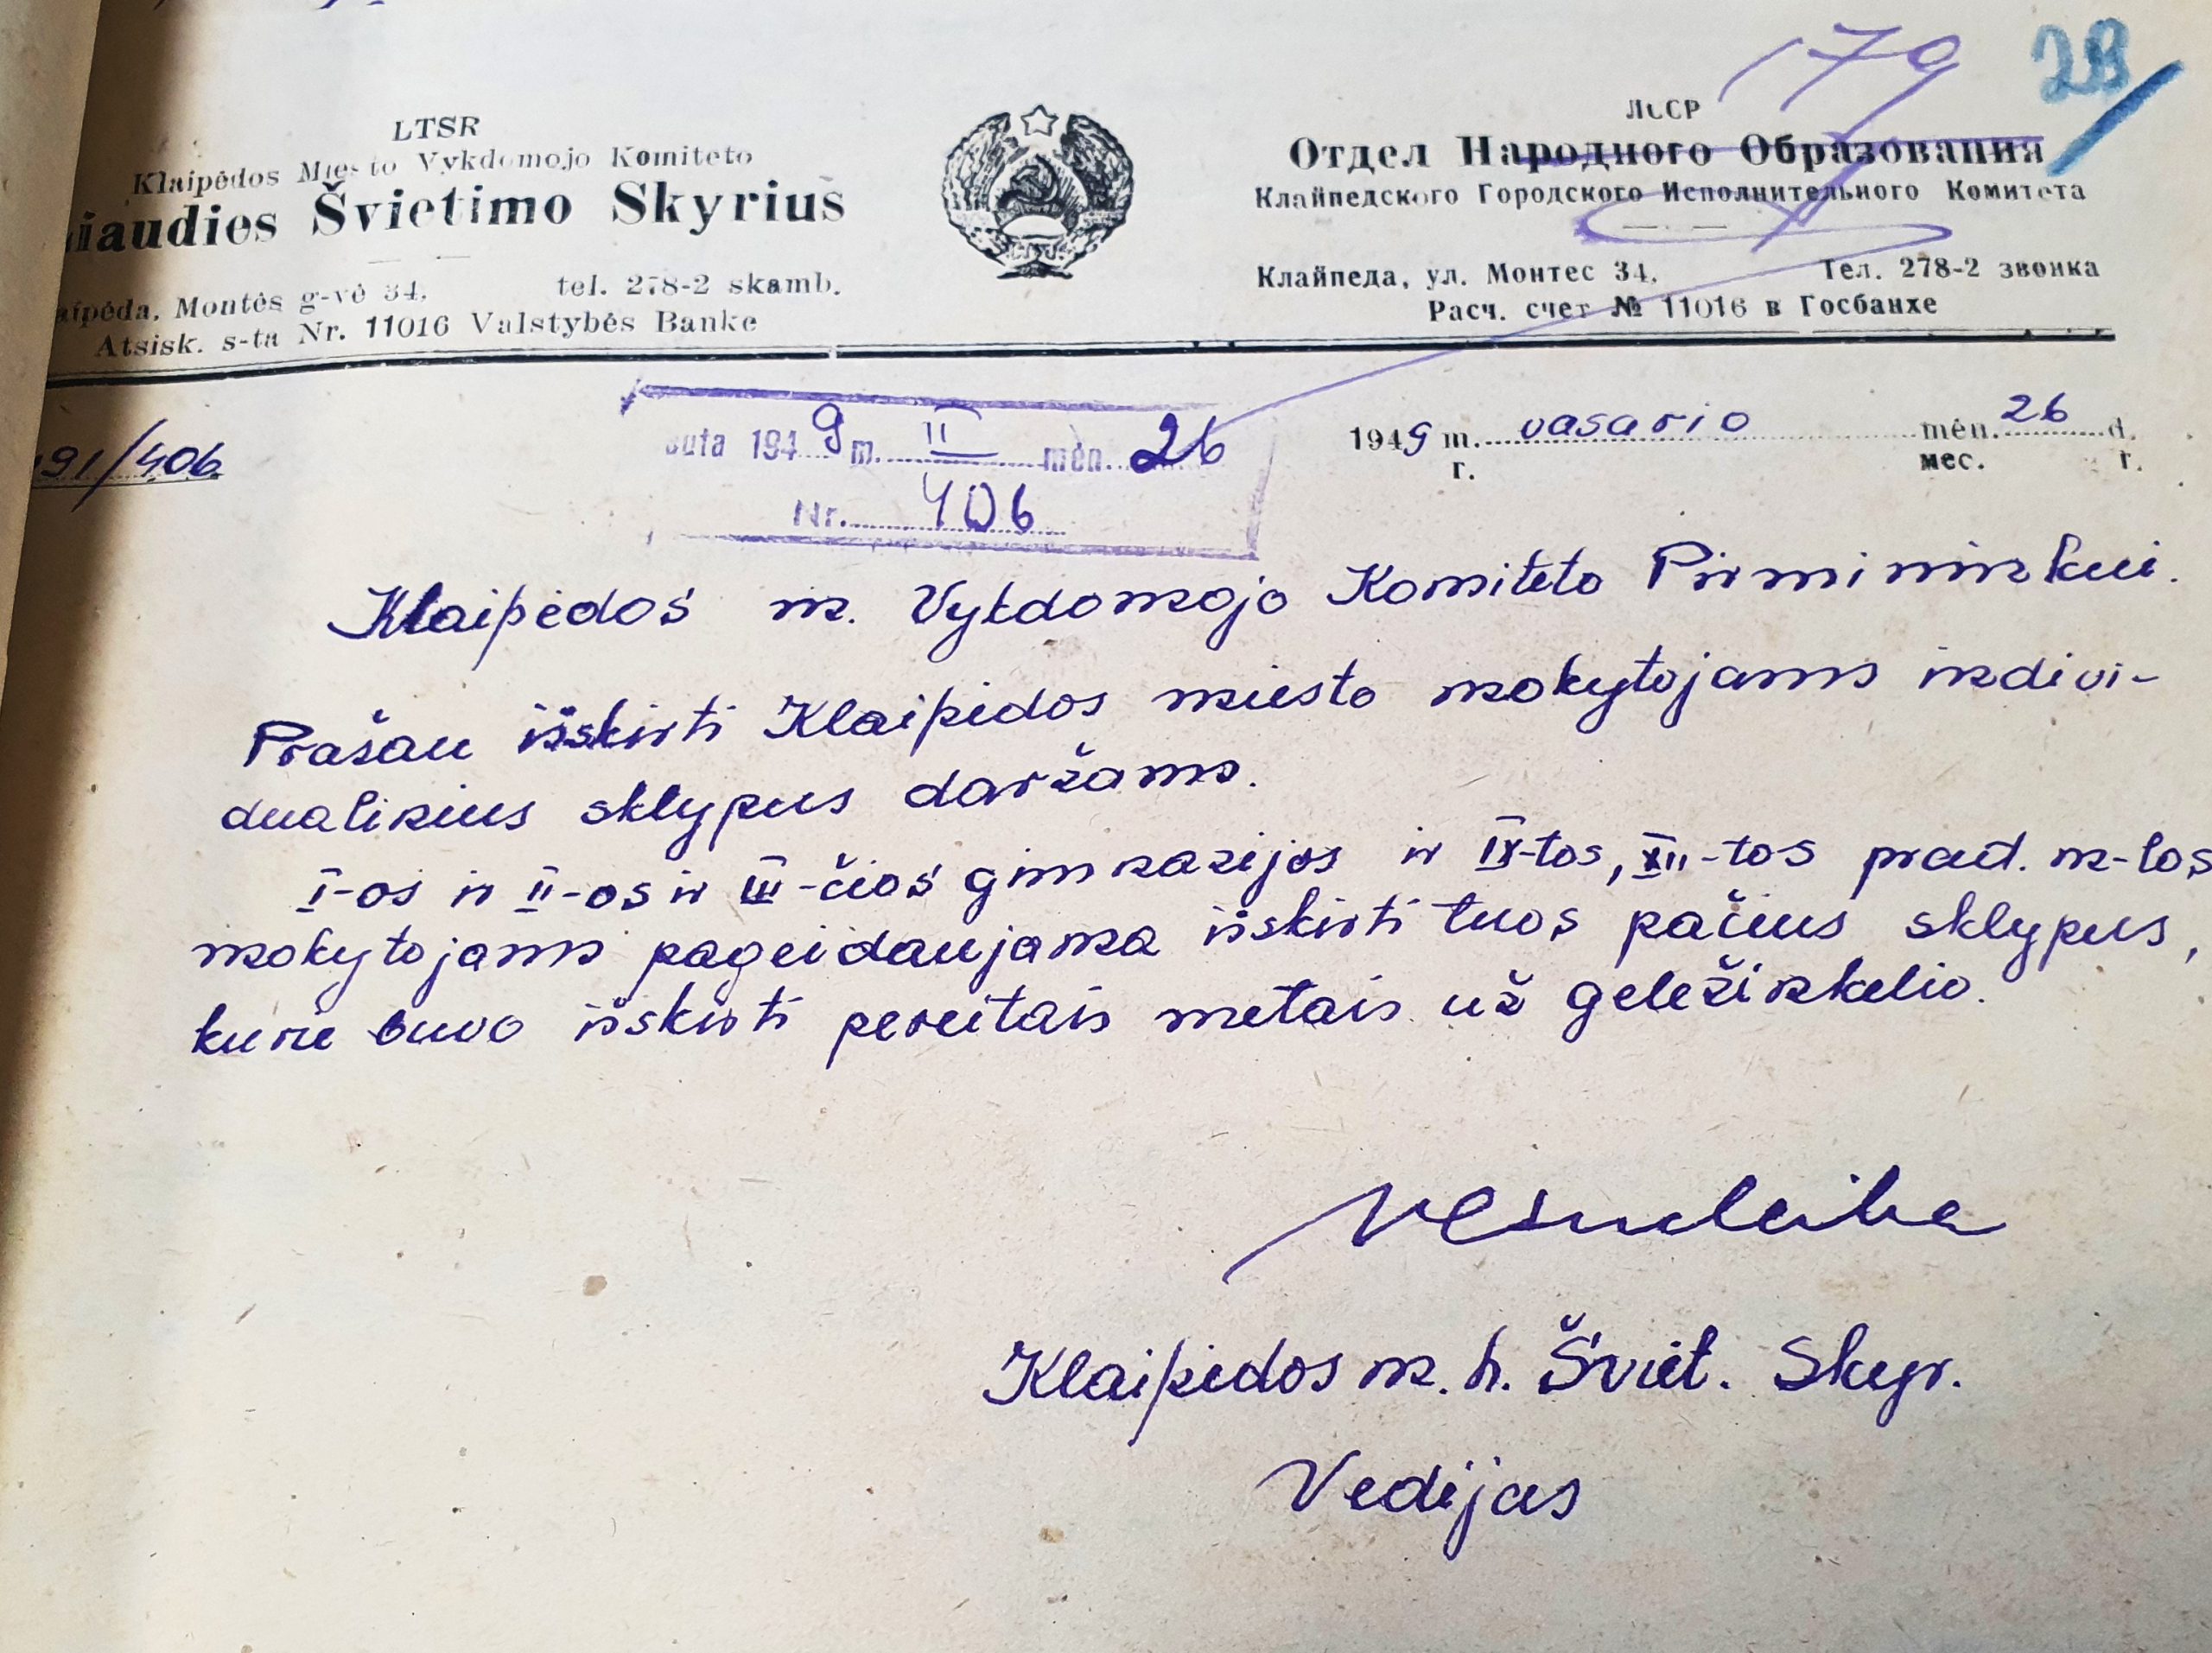 179 28
LTSR
Klaipėdos Miesto Vykdomojo Komiteto
iaudies Švietimo Skyrius
aipėda, Montės g-vė 34, tel. 278-2 skamb.
Atsisk. s-ta Nr. 11016 Valstybės Banke
ЛССР
Отдел Народного Образования
Клайпедского Городского Исполнительного Комитета
Клайпеда, ул. Монтес 34, Тел. 278-2 звонка
Расч. счет № 11016 в Госбанхе
91/406
auta 1949 m. II mėn. 26
Nr. 406
1949 m. vasario mėn. 26 d.
г. мес. г.
Klaipėdos m. Vykdomojo Komiteto Pirmininkui.
Prašau išskirti Klaipėdos miesto mokytojams indivi-
dualinius sklypus daržams.
I-os ir II-os ir III-čios gimnazijos ir IX-tos, XII-tos prad. m-los
mokytojams pageidaujama išskirti tuos pačius sklypus,
kurie buvo išskirti pereitais metais už geležinkelio.
Klaipėdos m. l. Šviet. Skyr.
Vedėjas